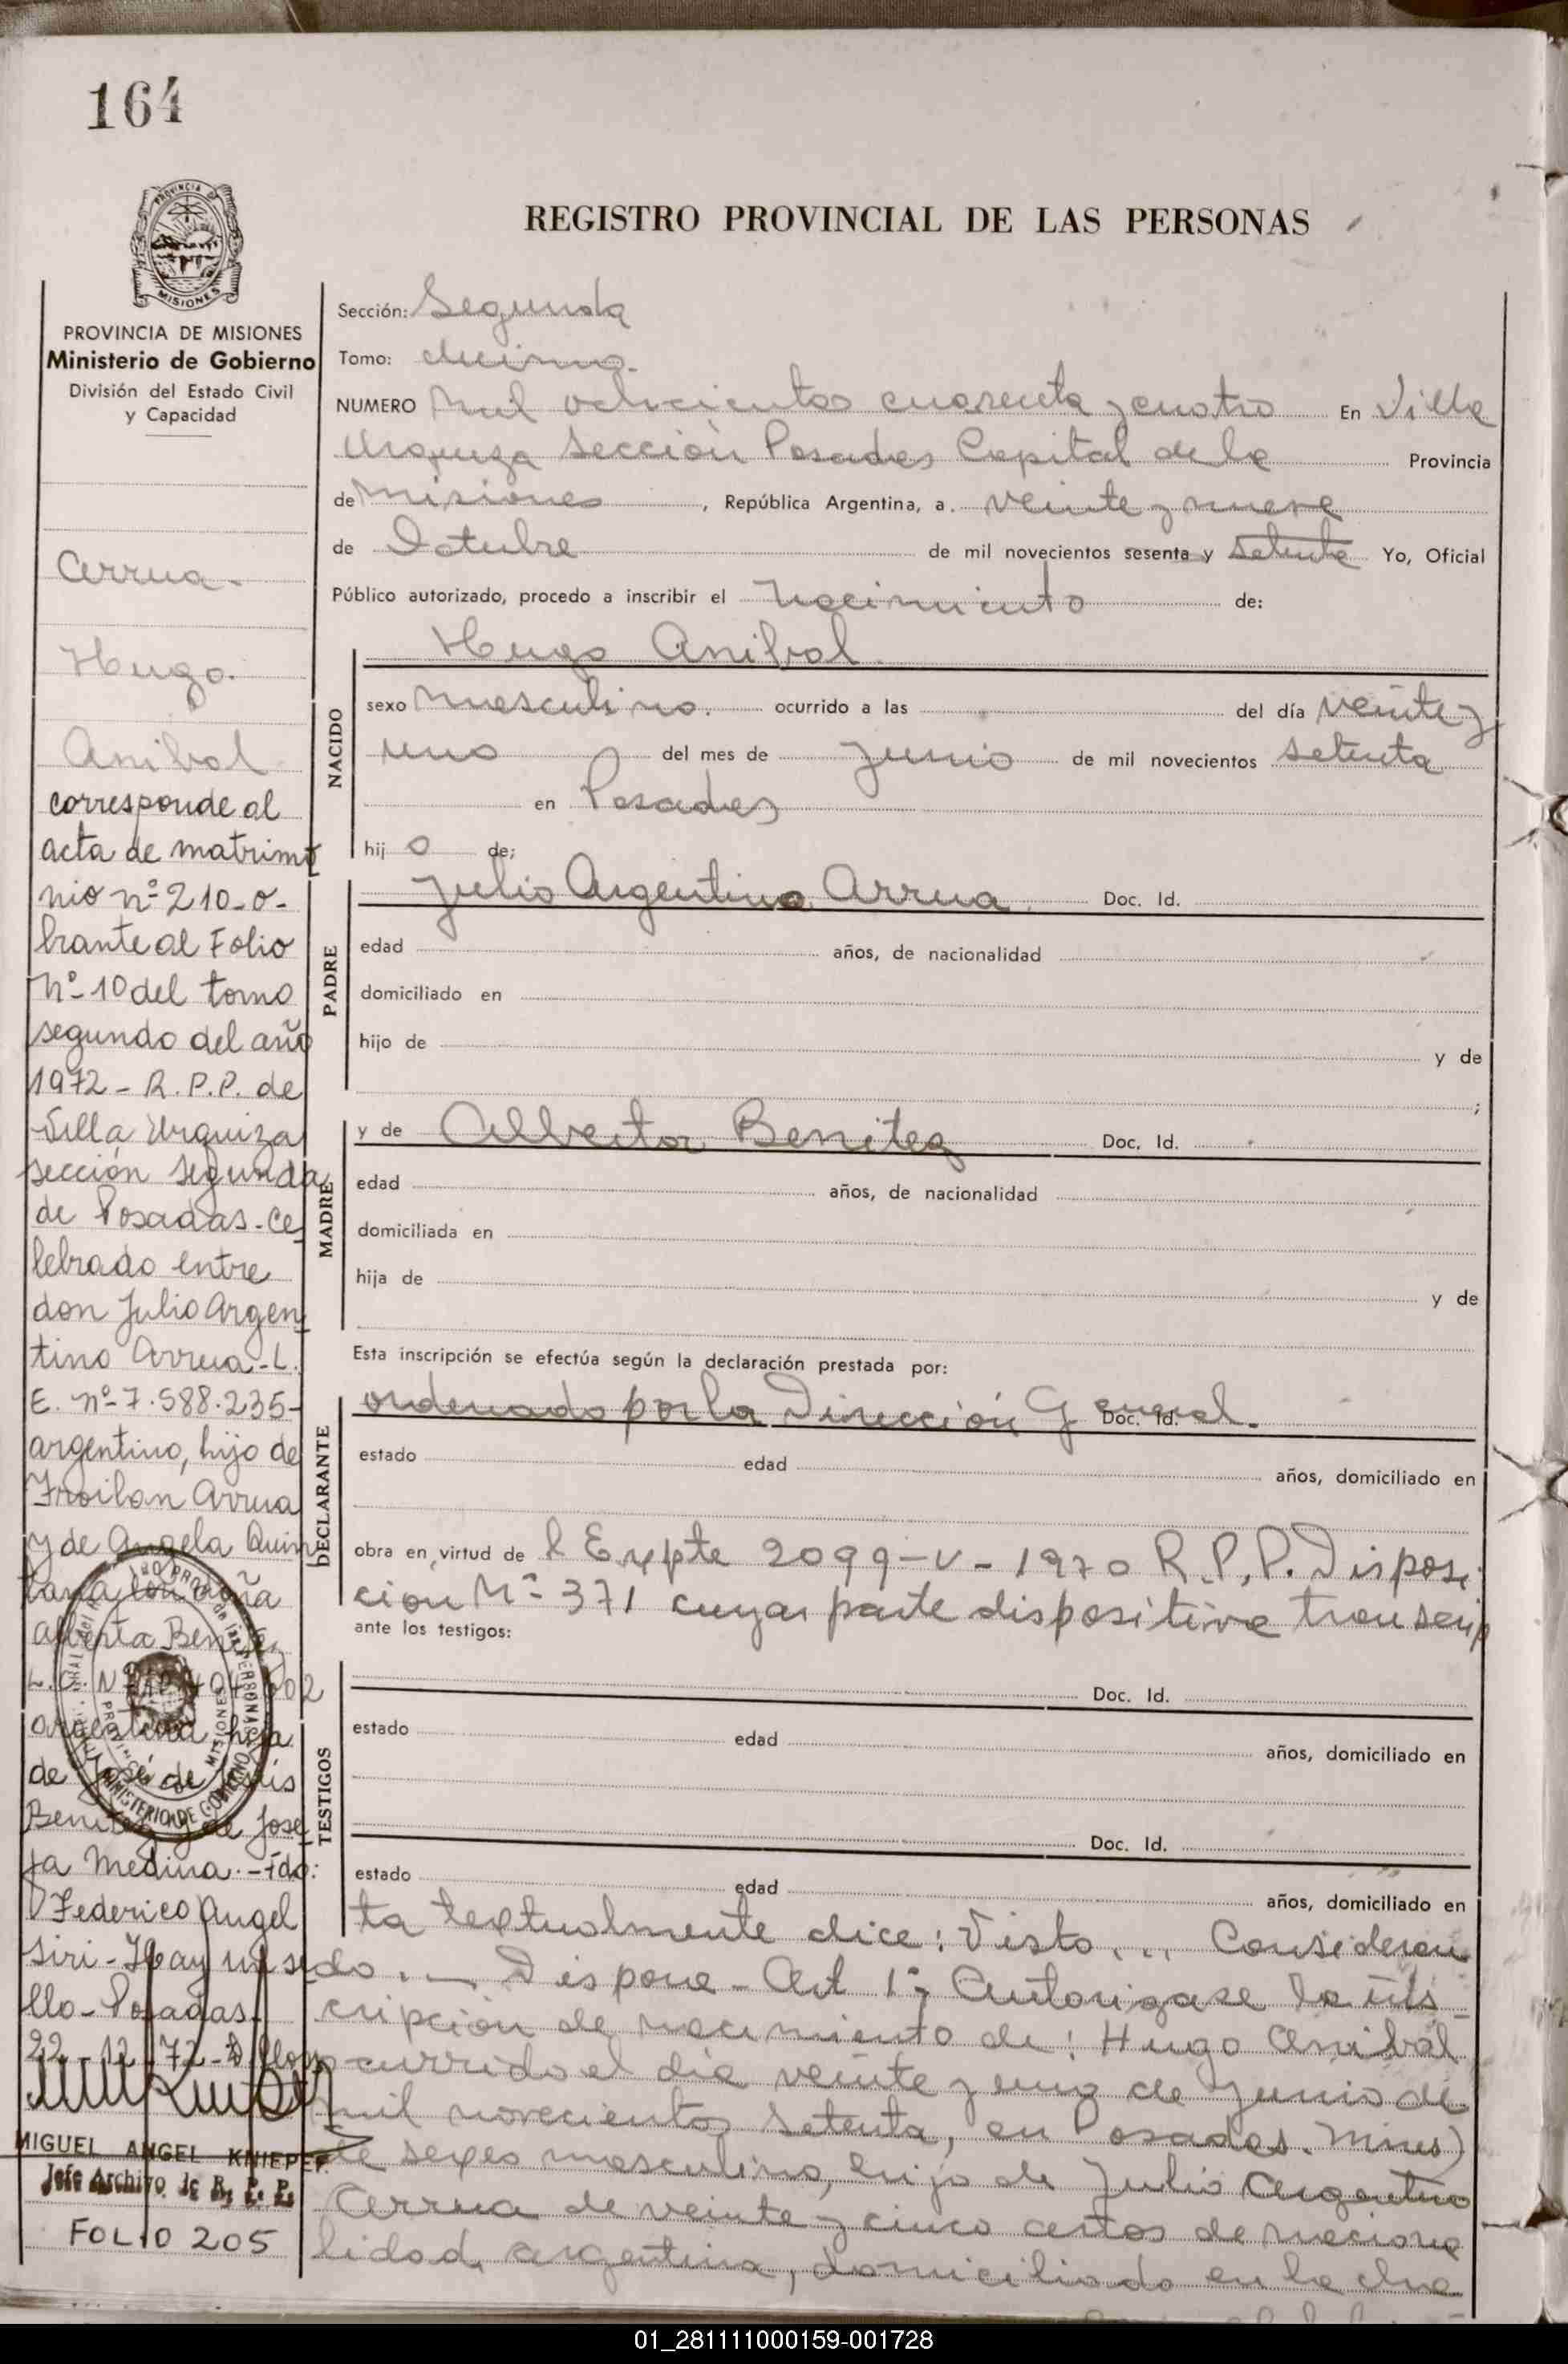 164
PROVINCIA DE
MISIONES
PROVINCIA DE MISIONES
Ministerio de Gobierno
División del Estado Civil
y Capacidad
REGISTRO PROVINCIAL DE LAS PERSONAS
Sección: Segunda
Tomo: decimo.
NUMERO Mil ochocientos cuarenta y cuatro En Villa
Urquiza sección Posadas Capital de la Provincia
de Misiones, República Argentina, a. veinte y nueve
de Octubre de mil novecientos sesenta y setenta Yo, Oficial
Público autorizado, procedo a inscribir el nacimiento de:
Hugo Anibal
NACIDO
sexo masculino. ocurrido a las del día veinte y
uno del mes de junio de mil novecientos setenta
en Posadas
hij o de;
PADRE
Julio Argentino Arrua. Doc. Id.
edad años, de nacionalidad
domiciliado en
hijo de y de
;
MADRE
y de Alberta Benitez Doc. Id.
edad años, de nacionalidad
domiciliada en
hija de y de
Esta inscripción se efectúa según la declaración prestada por:
DECLARANTE
ordenado por la Dirección General. Doc. Id.
estado edad años, domiciliado en
obra en virtud de l Expte 2099-V-1970 R.P.P. Disposi
ción Nº 371 cuya parte dispositiva transcrip
ante los testigos:
TESTIGOS
Doc. Id.
estado edad años, domiciliado en
Doc. Id.
estado edad años, domiciliado en
ta textualmente dice: Visto... Consideran
do. — Dispone - Art 1º; Autorizase la ins
cripción de nacimiento de: Hugo Anibal
ocurrido el día veinte y uno de junio de
mil novecientos setenta, en Posadas. Mnes)
de sexo masculino, hijo de Julio Argentino
Arrua de veinte y cinco años de naciona
lidad argentina, domiciliado en la cha
Arrua-
Hugo.
Anibal
corresponde al
acta de matrimo
nio nº 210-o-
brante al Folio
Nº 10 del tomo
segundo del año
1972 - R.P.P. de
Villa Urquiza
sección segunda
de Posadas-ce
lebrado entre
don Julio Argen
tino Arrua-L.
E. nº 7.588.235-
argentino, hijo de
Froilan Arrua
y de Angela Quin
tana con doña
Alberta Benitez
L.C. Nº
argentina hija
de José de Jesús
Benitez y de Jose
fa Medina.-Fdo:
Federico Angel
Siri-Hay un se
llo-Posadas.
22 12 72-
MIGUEL ANGEL KNIEPER
Jefe Archivo de R. P. P.
FOLIO 205
MINISTERIO DE GOBIERNO
MISIONES
01_281111000159-001728